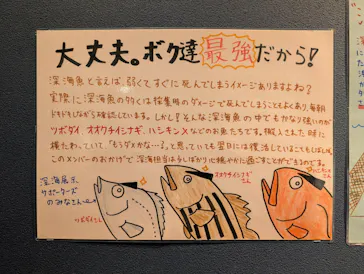 大丈夫。ボク達最強だから!
深海魚と言えば、弱くてすぐに死んでしまうイメージありますよね?
実際に深海魚の多くは採集時のダメージで死んでしまうこともよくあり、毎朝
ドキドキしながら確認しています。しかし!そんな深海魚の中でもかなり強いのが
ツボダイ オオクチイシナギ、ハシキンメなどのお魚たちです。搬入された時に
横たわっていて、「もうダメかな…」と思っていても翌日には復活していることもしばしば。
このメンバーのおかげで深海担当は少しばかり心穏やかに過ごすことができるのです。
深海展示
サポーターズの
みなさん
ツボダイさん
オオクチイシナギ
さん
ハシキンメ
さん